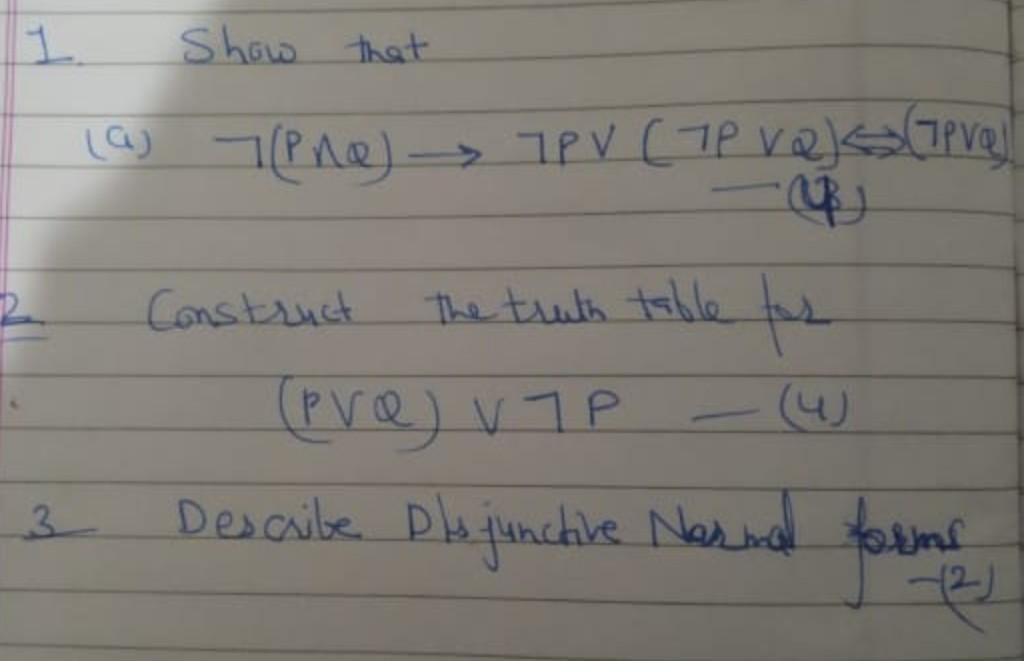 1. Show that
(a) ¬(P∧Q) → ¬P∨ (¬P ∨Q) ⇔ (¬P∨Q)
2 Construct the truth table for
(P∨Q) ∨ ¬P — (4)
3 Describe Disjunctive Normal forms
—(2)